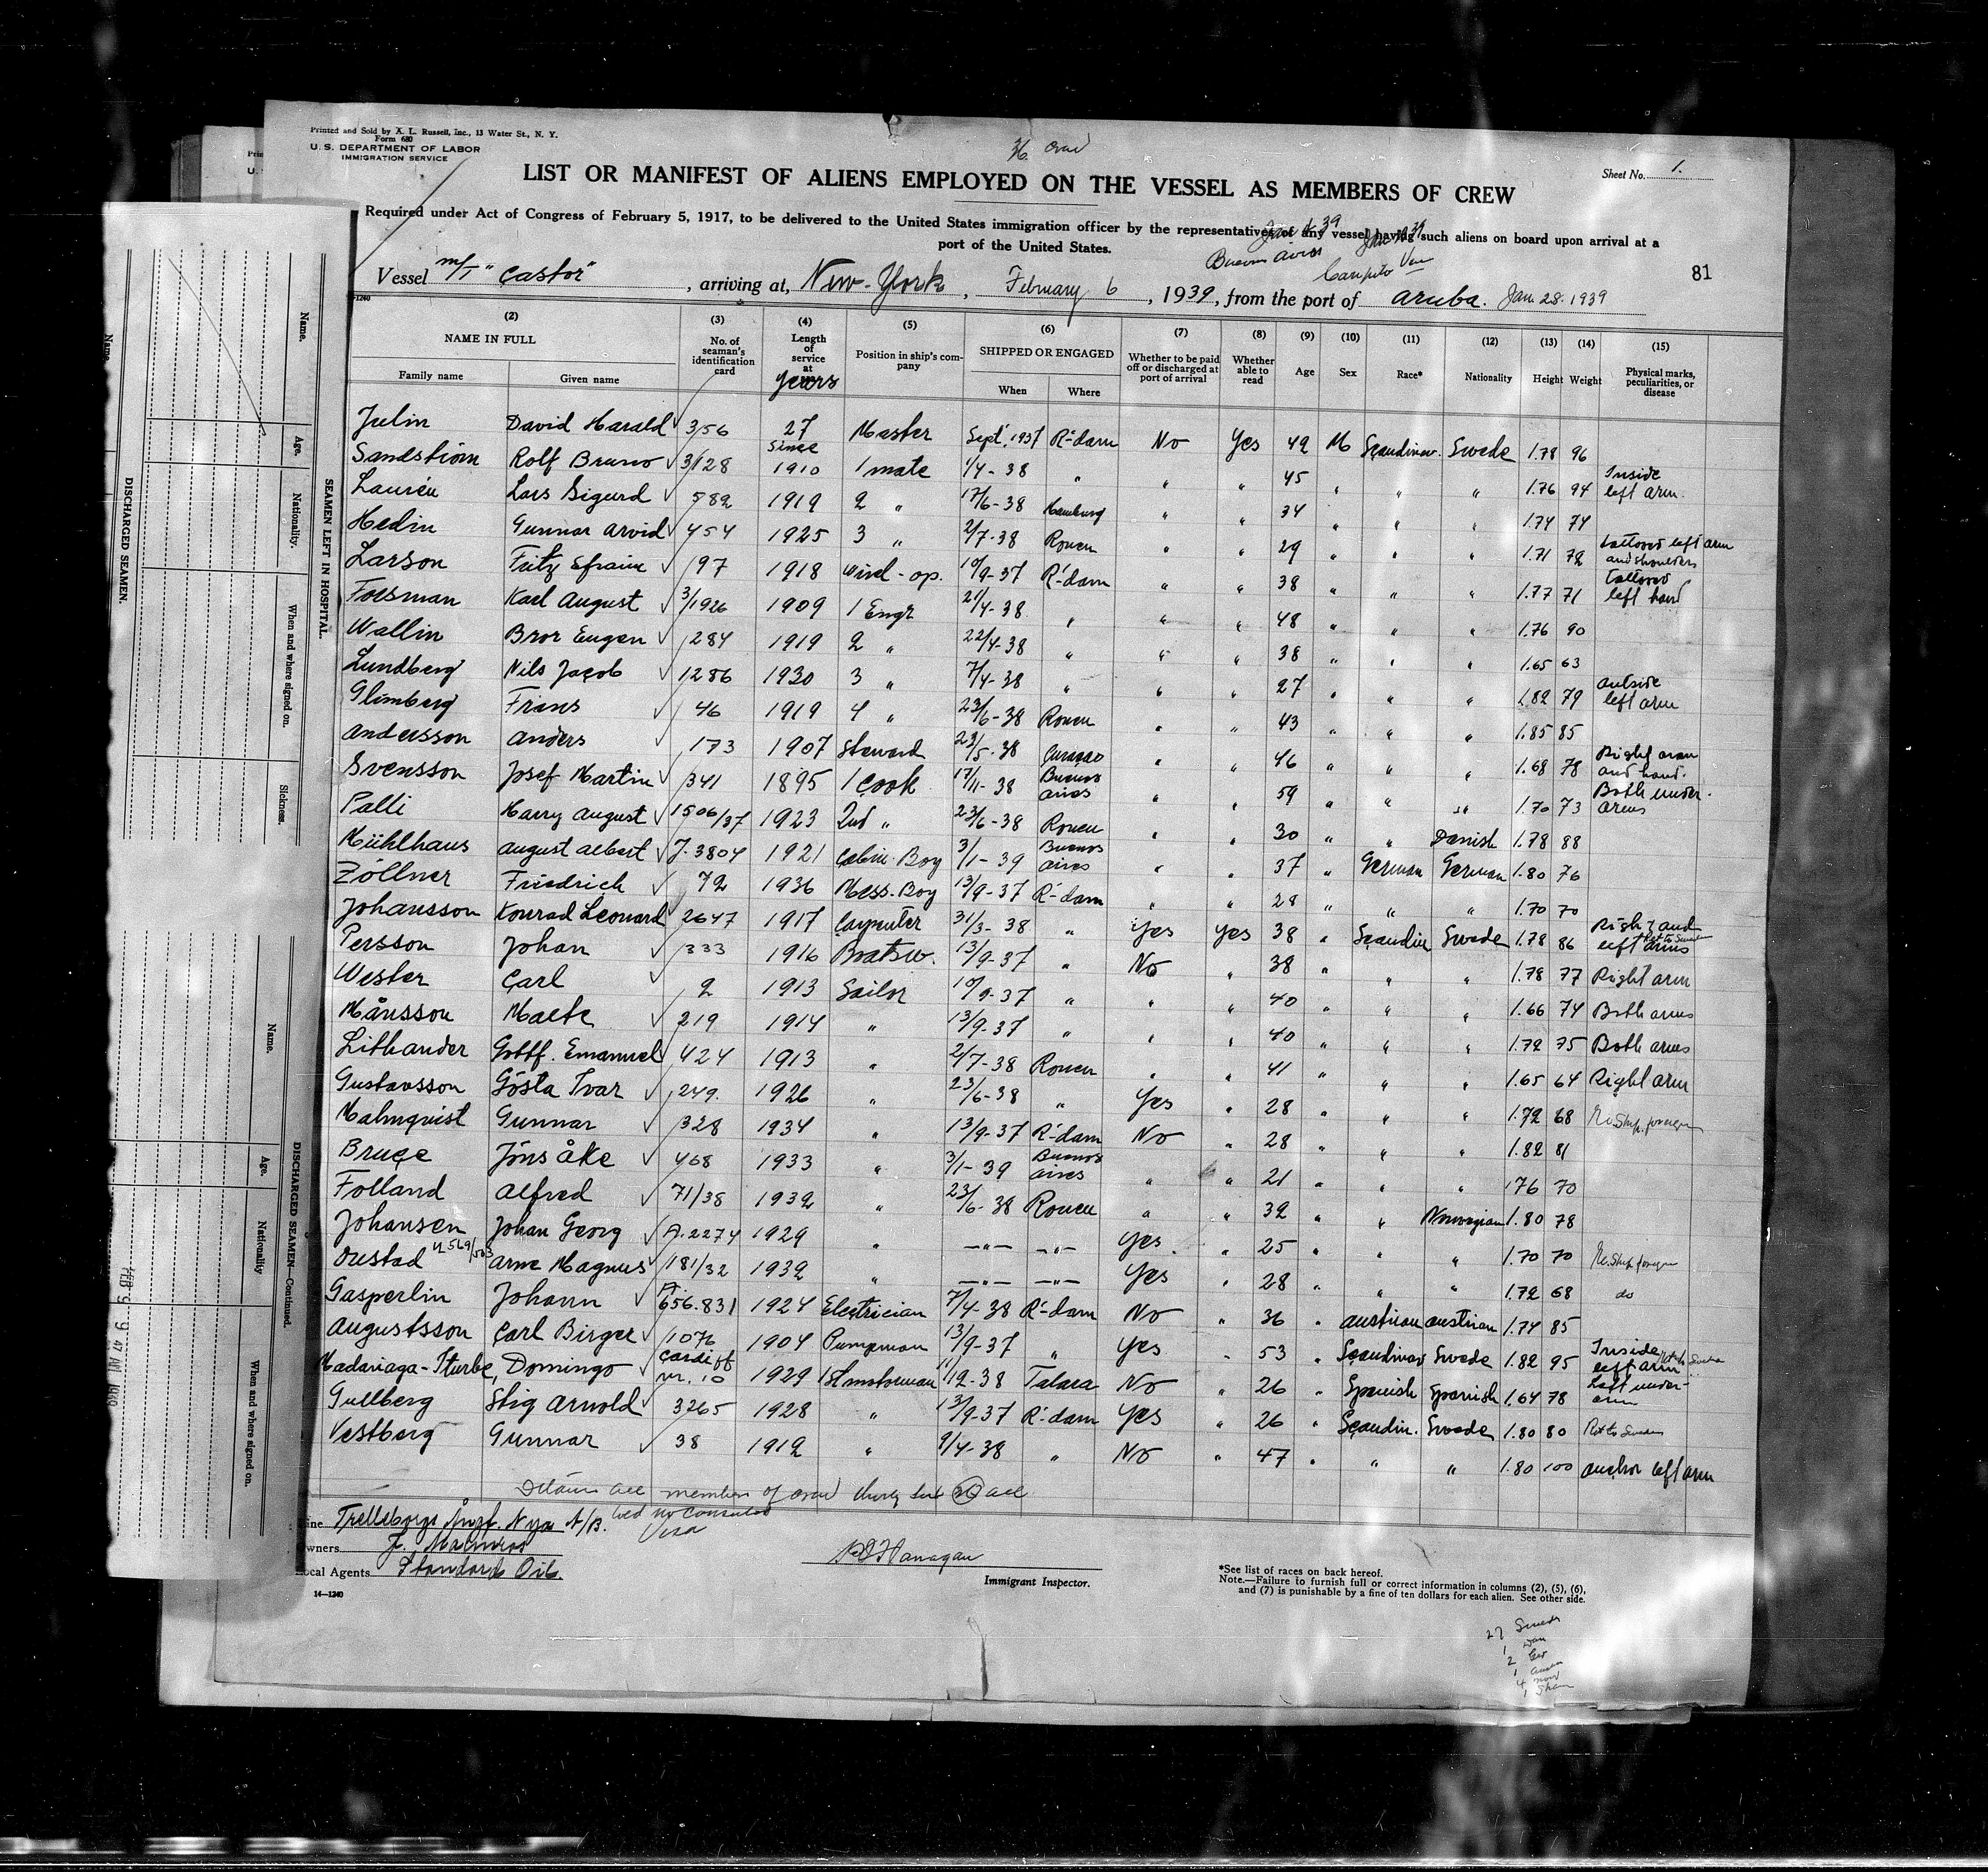 Printed and Sold by X. L. Russell, Inc., 13 Water St., N. Y.
Form 680
U. S. DEPARTMENT OF LABOR
IMMIGRATION SERVICE
36 crew
Sheet No. 1.
LIST OR MANIFEST OF ALIENS EMPLOYED ON THE VESSEL AS MEMBERS OF CREW
Required under Act of Congress of February 5, 1917, to be delivered to the United States immigration officer by the representatives of any vessel having such aliens on board upon arrival at a
port of the United States.
Buenos Aires
Caripito Ven
81
Vessel M/T "Castor", arriving at, New-York, February 6, 1939, from the port of Aruba. Jan. 28. 1939
14-1240
(2) (3) (4) (5) (6) (7) (8) (9) (10) (11) (12) (13) (14) (15)
NAME IN FULL
Family name Given name
No. of seaman's identification card
Length of service at
years
Position in ship's company
SHIPPED OR ENGAGED
When Where
Whether to be paid off or discharged at port of arrival
Whether able to read
Age Sex Race* Nationality Height Weight
Physical marks, peculiarities, or disease
Julin David Harald 3/56 27 Master Sept. 1937 R-dam No Yes 49 M Scandinav. Swede 1.78 96
Sandström Rolf Bruno 3/128 since 1910 1 mate 1/4-38 " " " 45 " " " 1.76 94 Inside left arm.
Laurén Lars Sigurd 582 1919 2 " 17/6-38 Hamburg " " 34 " " " 1.74 74
Hedin Gunnar Arvid 454 1925 3 " 2/7-38 Rouen " " 29 " " " 1.71 72 tattooed left arm and shoulders
Larson Fritz Efraim 197 1918 Wirel-op. 10/9-37 R-dam " " 38 " " " 1.77 71 tattooed left hand
Forsman Karl August 3/1926 1909 1 Engr 21/4-38 " " " 48 " " " 1.76 90
Wallin Bror Eugen 284 1919 2 " 22/4-38 " " " 38 " " " 1.65 63
Lundberg Nils Jacob 1286 1930 3 " 7/4-38 " " " 27 " " " 1.82 79 outside left arm
Glimberg Frans 46 1919 4 " 23/6-38 Rouen " " 43 " " " 1.85 85
Andersson Anders 173 1907 Steward 23/5-38 Curaçao " " 46 " " " 1.68 78 Right arm and hand.
Svensson Josef Martin 341 1895 1 cook 17/11-38 Buenos aires " " 59 " " " 1.70 73 Both under-arms
Palli Harry August 1506/37 1923 2nd " 23/6-38 Rouen " " 30 " " Danish 1.78 88
Mühlhaus August Albert J.3804 1921 Cabin-Boy 3/1-39 Buenos aires " " 37 " German German 1.80 76
Zöllner Friedrich 72 1936 Mess-Boy 13/9-37 R-dam " " 28 " " " 1.70 70
Johansson Konrad Leonard 2647 1917 Carpenter 31/3-38 " Yes Yes 38 " Scandin Swede 1.78 86 Right and left arms
Persson Johan 333 1916 Boatsw. 13/9-37 " No " 38 " " " 1.78 77 Right arm
Wester Carl 2 1913 Sailor 10/9-37 " " " 40 " " " 1.66 74 Both arms
Månsson Malte 219 1914 " 13/9-37 " " " 40 " " " 1.72 75 Both arms
Lithander Gottf. Emanuel 424 1913 " 2/7-38 Rouen " " 41 " " " 1.65 64 Right arm
Gustavsson Gösta Ivar 249. 1926 " 23/6-38 " Yes " 28 " " " 1.72 68 Re Ship. foreign
Malmqvist Gunnar 328 1934 " 13/9-37 R-dam No " 28 " " " 1.82 81
Bruce Jöns Åke 468 1933 " 3/1-39 Buenos aires " " 21 " " " 176 70
Folland Alfred 71/38 1932 " 23/6-38 Rouen " " 32 " " Norwegian 1.80 78
Johansen Johan Georg A.2274 1929 " —"— —"— Yes. " 25 " " " 1.70 70 Re.Ship foreign
Oustad Arne Magnus 181/32 1932 " —"— —"— Yes " 28 " " " 1.72 68 do
Gasperlin Johann 656.831 1924 Electrician 7/4-38 R-dam No " 36 " austrian austrian 1.74 85
Augustsson Carl Birger 1076 1904 Pumpman 13/9-37 " Yes " 53 " Scandinav Swede 1.82 95 Inside left arm
Madariaga-Iturbe, Domingo Cardiff nr. 10 1929 1st motorman 11/12-38 Talara No " 26 " Spanish Spanish 1.64 78 Left under-arm
Gullberg Stig Arnold 3265 1928 " 13/9-37 R-dam Yes " 26 " Scandin. Swede 1.80 80 Ret to Sweden
Vestberg Gunnar 38 1912 " 9/4-38 " No " 47 " " " 1.80 100 anchor left arm
Detain all members of crew thirty six (36) all
no consular
Visa
Line Trelleborgs Ångf. Nya A/B.
Owners F. Malmros
Local Agents Standard Oil.
14-1240
Immigrant Inspector.
*See list of races on back hereof.
Note.—Failure to furnish full or correct information in columns (2), (5), (6),
and (7) is punishable by a fine of ten dollars for each alien. See other side.
27 Swede
1 Dan
2 Ger
1 Austr
4 Norw
1 Span
SEAMEN LEFT IN HOSPITAL.
Name. Age. Nationality. When and where signed on. Sickness.
DISCHARGED SEAMEN.
DISCHARGED SEAMEN—Continued.
Name. Age. Nationality When and where signed on.
FEB 9 9 47 AM 1939